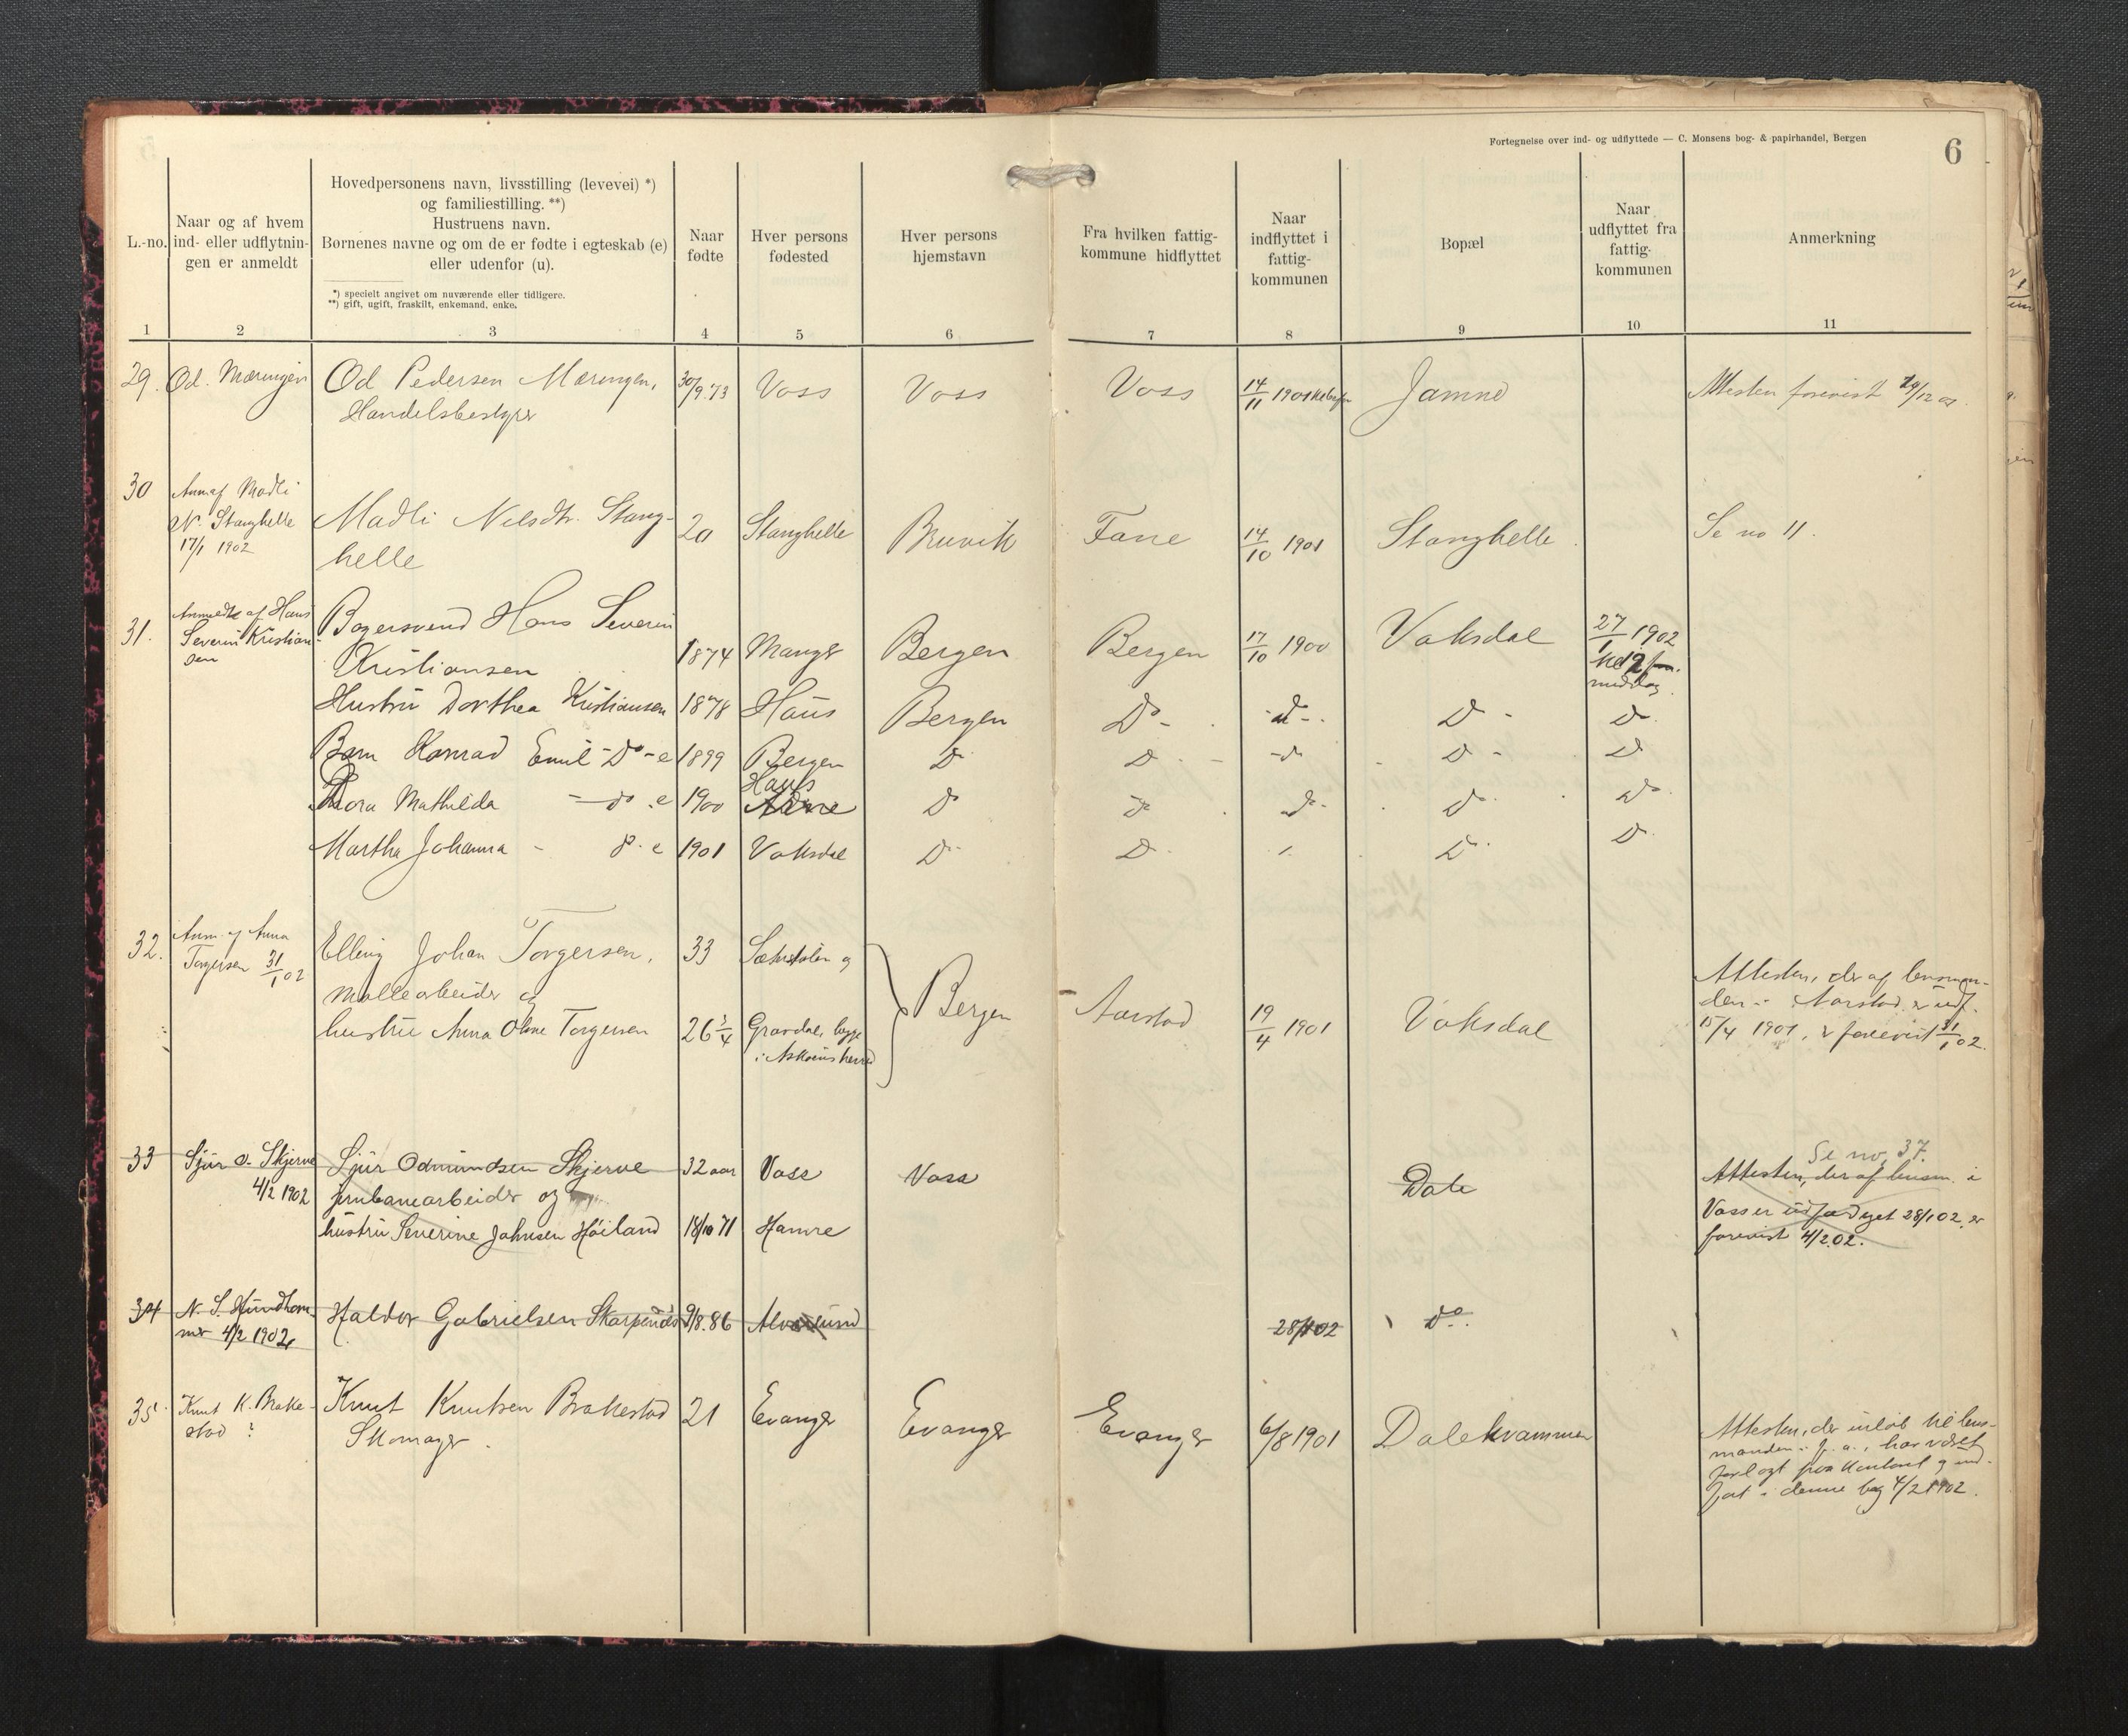 Fortegnelse over ind- og udflyttede — C. Monsens bog- & papirhandel, Bergen
6
L.-no.
Naar og af hvem
ind- eller udflytnin-
gen er anmeldt
Hovedpersonens navn, livsstilling (levevei) *)
og familiestilling. **)
Hustruens navn.
Børnenes navne og om de er fødte i egteskab (e)
eller udenfor (u).
*) specielt angivet om nuværende eller tidligere.
**) gift, ugift, fraskilt, enkemand, enke.
Naar
fødte
Hver persons
fødested
Hver persons
hjemstavn
Fra hvilken fattig-
kommune hidflyttet
Naar
indflyttet i
fattig-
kommunen
Bopæl
Naar
udflyttet fra
fattig-
kommunen
Anmerkning
1 2 3 4 5 6 7 8 9 10 11
29. Od. Mæringen Od Pedersen Mæringen, 30/9.73 Voss Voss Voss 14/11 1901 Jamne Attesten forevist
Handelsbestyrer
30 Anm af Madli
N. Stanghelle Madli Nilsdtr. Stang- 20 Stanghelle Bruvik Fane 14/10 1901 Stanghelle Se no 11.
17/1 1902 helle
31. Anmeldt af Hans Bagersvend Hans Severin
Severin Kristian-
sen Kristiansen 1874 Manger Bergen Bergen 17/10 1900 Vaksdal 27/1 1902
middag.
Hustru Dorthea Kristiansen 1878 Haus Bergen Do - do - Do - Do
Barn Konrad Emil - Do - e 1899 Bergen Do Do - do Do - Do
Haus
Thora Mathilda - do . e 1900 Do Do do - Do Do
Martha Johanna - do . e 1901 Vaksdal Do Do Do Do
32. Anm. af Anna
Torgersen 31/1 02
Elling Johan Torgersen, 33 og
Møllearbeider og Bergen Aarstad 19/4 1901 Vaksdal
hustru Anna Oline Torgersen 26 3/4 Gravdal, begge
i Askøens herred
Attesten, der af lensman-
den i Aarstad er udf.
15/4 1901, er forevist 31/1 02.
33 Sjur O. Skjerve Sjur Odmundsen Skjerve 32 aar Voss Voss Dale Se no, 37.
4/2 1902 jernbanearbeider og
hustru Severine Johnsen Høiland 18/10 71 Hamre
Attesten, der af lensm. i
Voss er udfærdiget 28/1 02, er
forevist 4/2 02.
34 N. S. Hundham-
mer 4/2 1902 Haldor Gabrielsen 9/8.86 Alversund 28/1 02 do
35 Knut K. Brake-
stad ? Knut Knutsen Brakestad 21 Evanger Evanger Evanger 6/8 1901 Dalekvammen
Skomager.
Attesten, der indløb til lens-
manden i f. a., har været
forlagt paa Kontoret og ind-
ført i denne bog 4/2 1902.